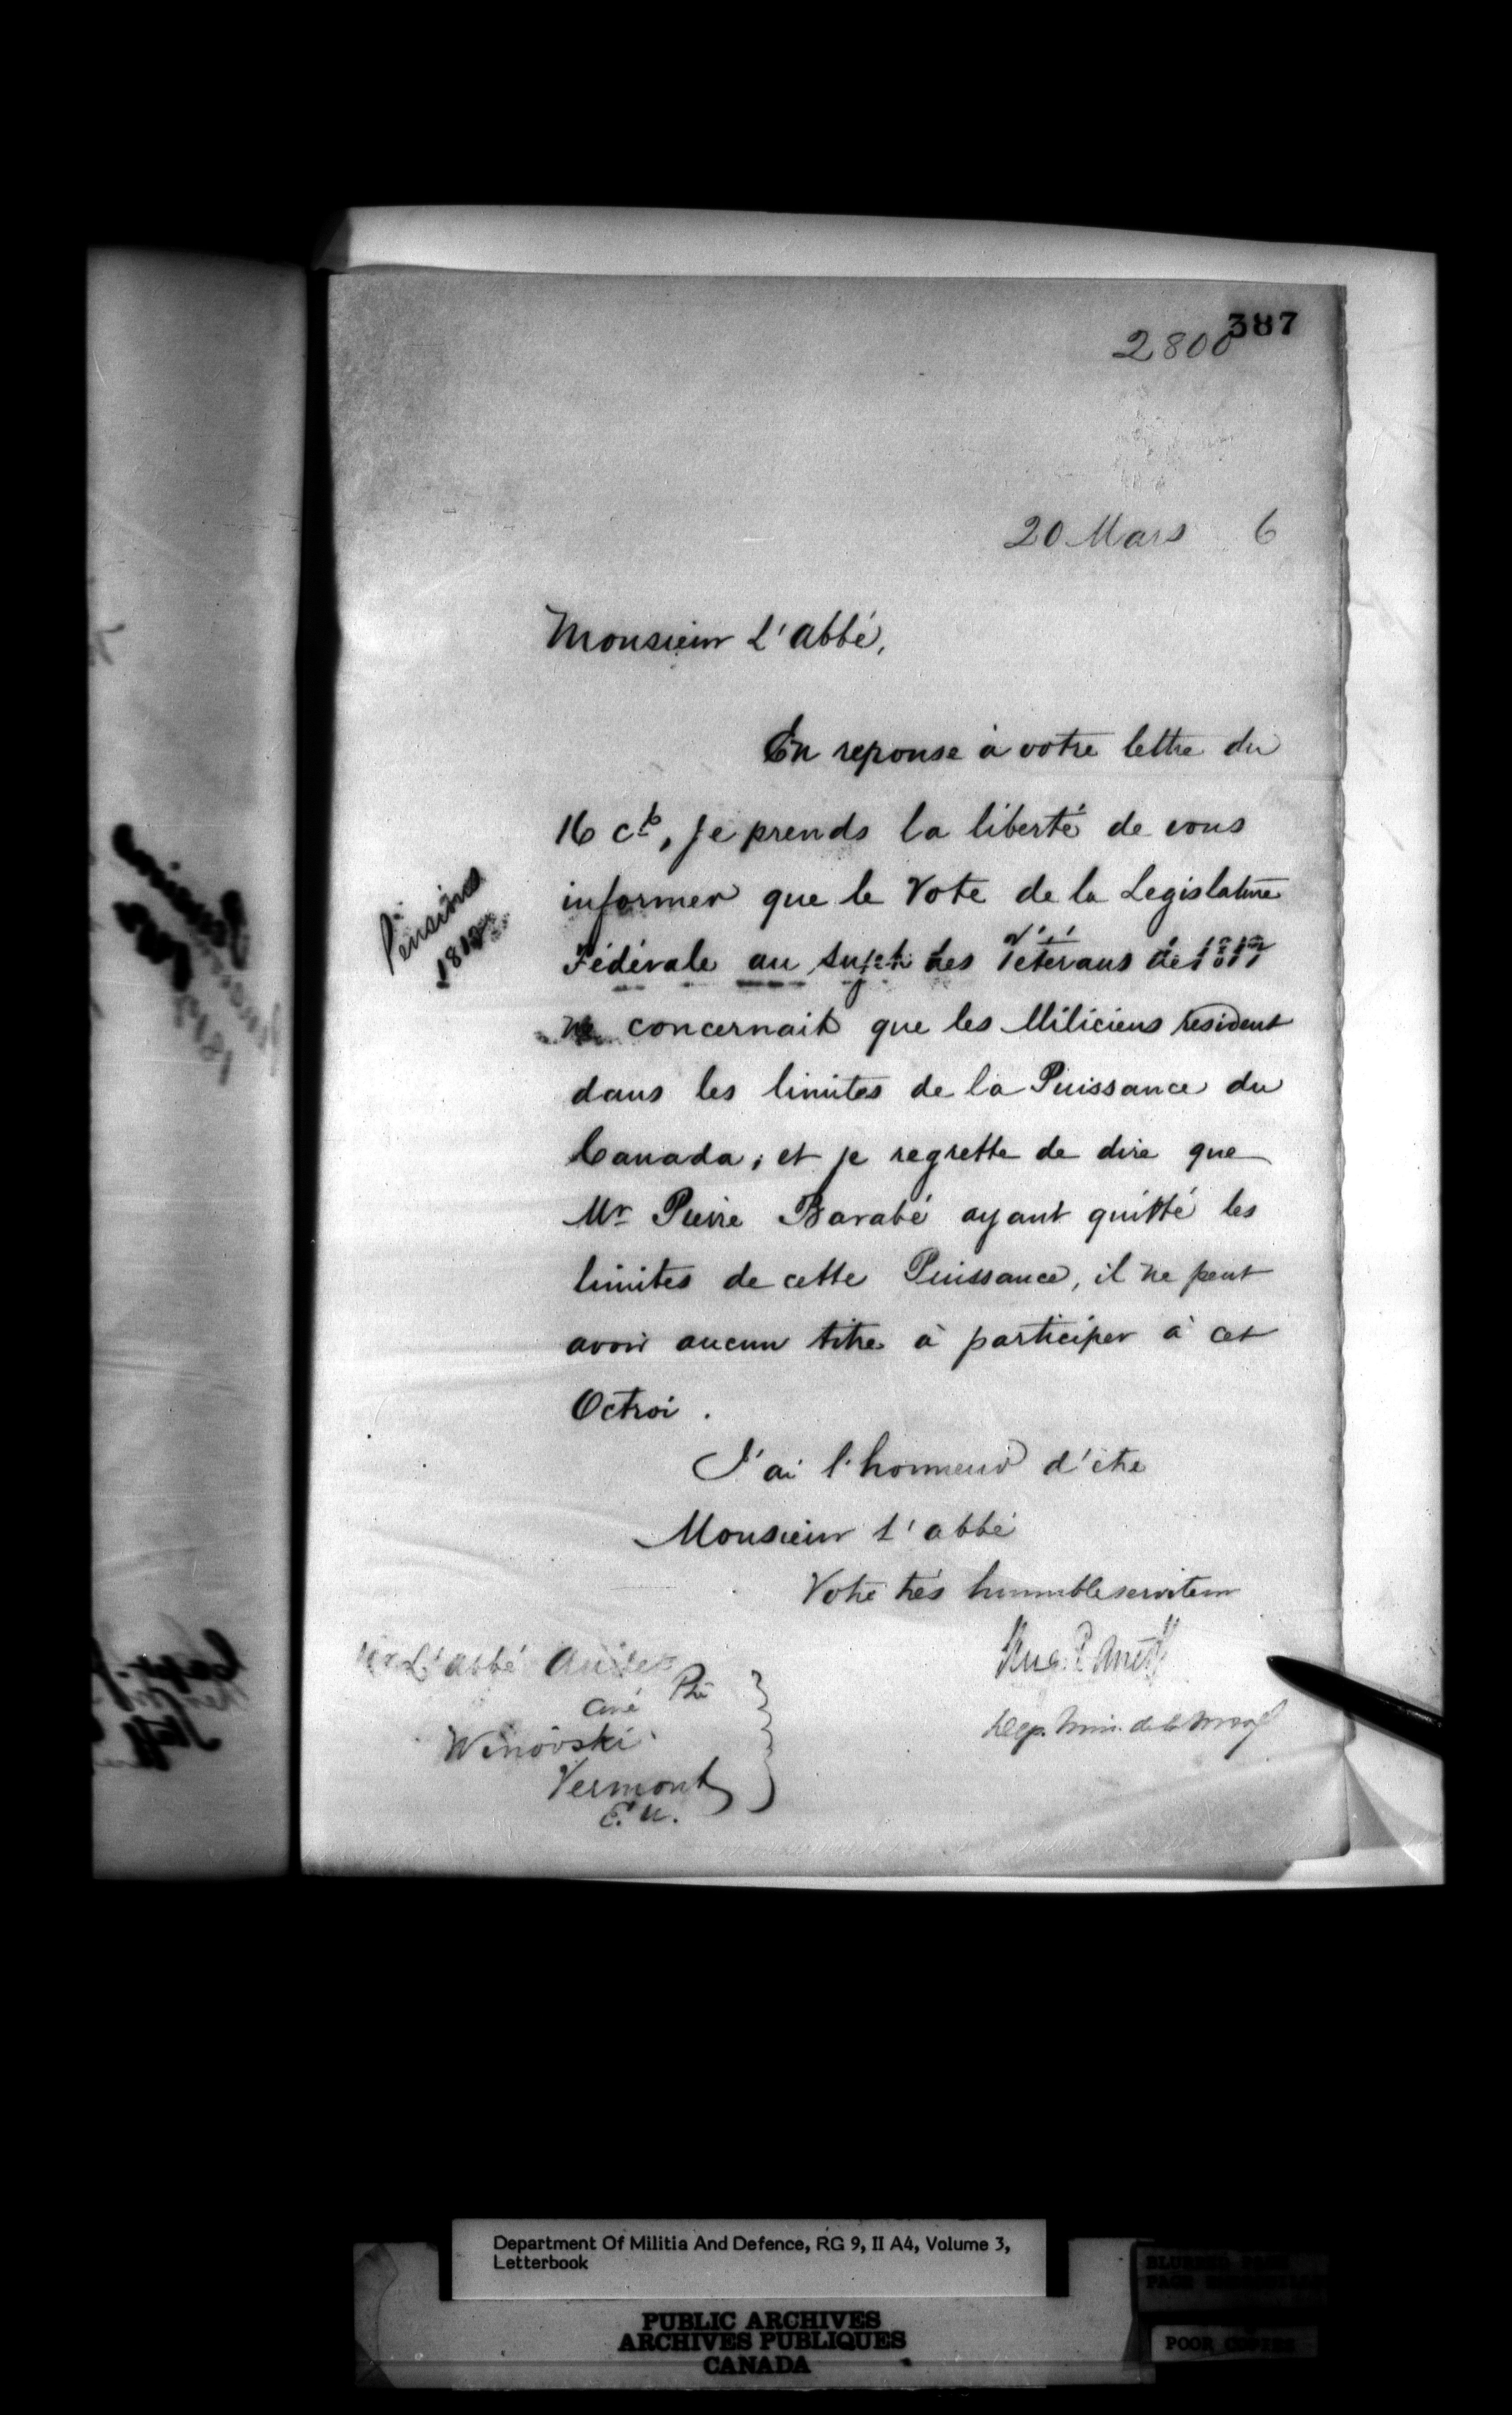 387
2800
20 Mars 6
Monsieur L'abbé,
En reponse à votre lettre du
16 ct, je prends la liberté de vous
informer que le Vote de la Legislature
Fédérale au sujet des Vétérans de 1812
ne concernait que les Miliciens resident
dans les limites de la Puissance du
Canada, et je regrette de dire que
Mr Pierre Barabé ayant quitté les
limites de cette Puissance, il ne peut
avoir aucun titre à participer à cet
Octroi.
Pensions
1812
J'ai l'honneur d'être
Monsieur l'abbé
Votre très humble serviteur
Dep. Min. de la
Mr L'abbé
Curé
Winovski
Vermont
E. U.
Department Of Militia And Defence, RG 9, II A4, Volume 3,
Letterbook
PUBLIC ARCHIVES
ARCHIVES PUBLIQUES
CANADA
POOR COPIES